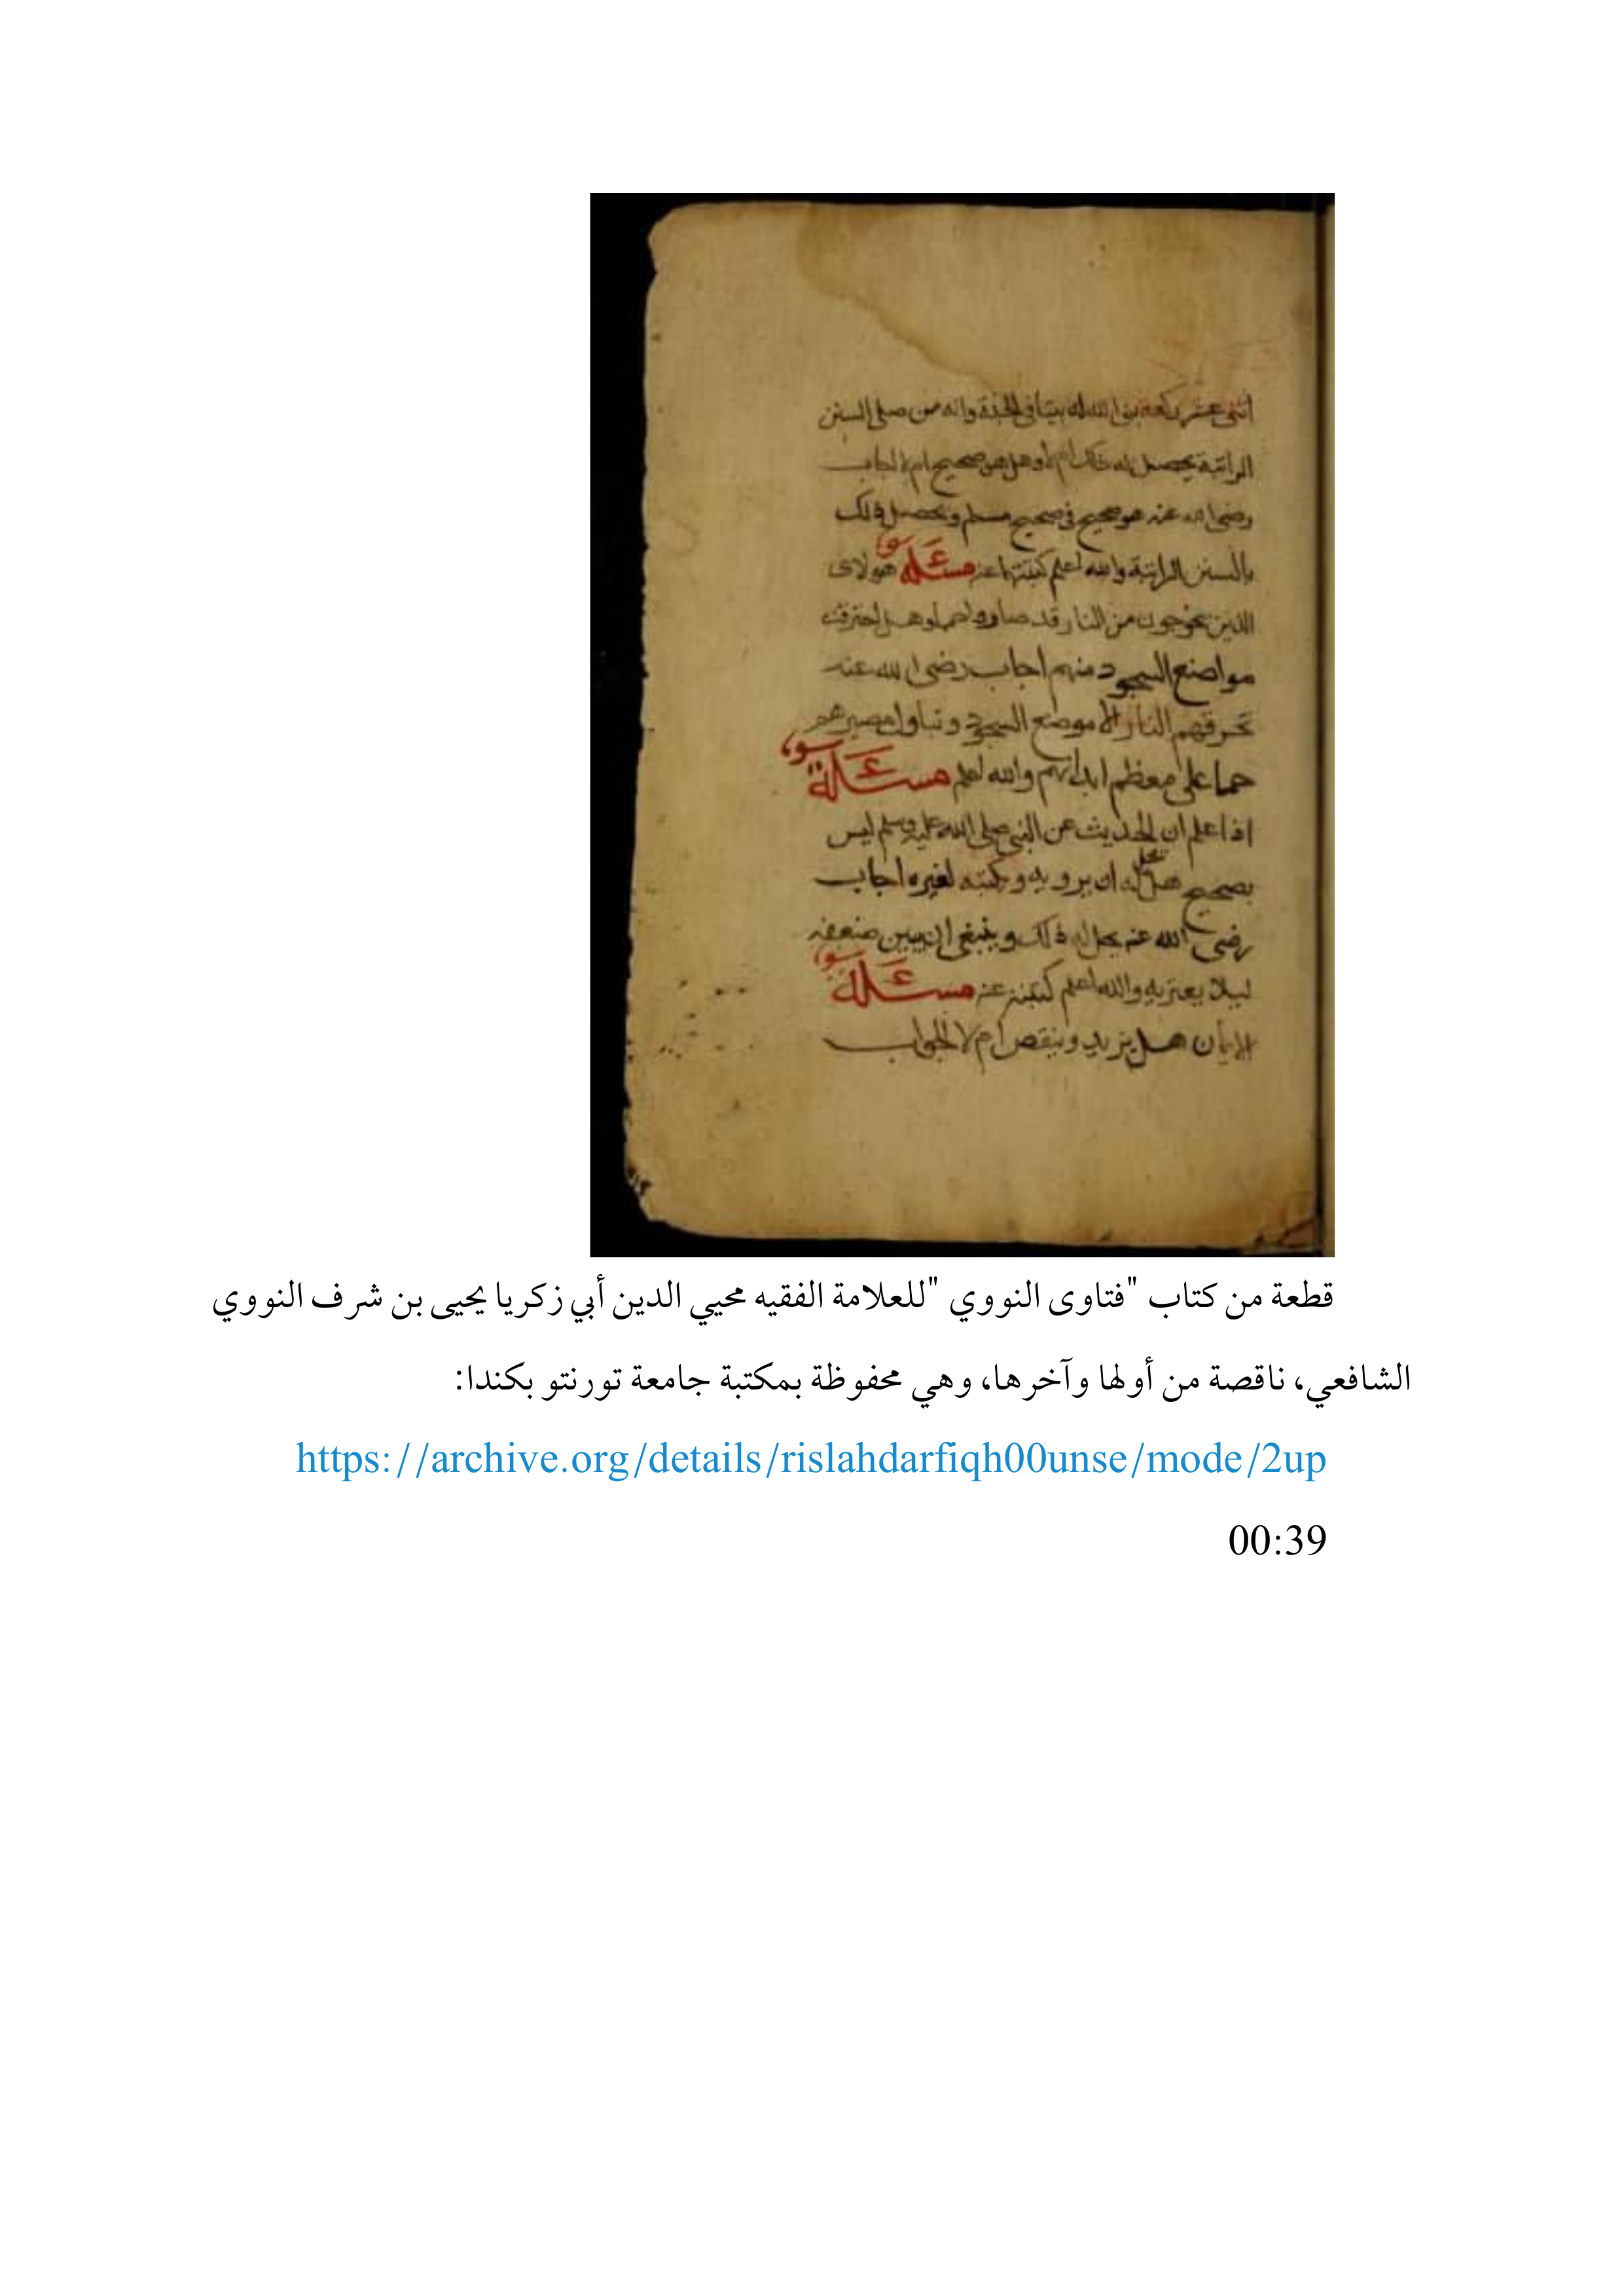 اثنى عشر ركعة بنى الله له بيتا في الجنة وانه من صلى السنن
الراتبة يحصل له ذلك ام لا وهل هو صحيح ام لا اجاب
رضى الله عنه هو صحيح في صحيح مسلم ويحصل ذلك
بالسنن الراتبة والله اعلم كتبتها عنه مسئلة هولاى
الذين يخرجون من النار قد صاروا حما وهل احترقت
مواضع السجود منهم اجاب رضى الله عنه
تحرقهم النار الا موضع السجود و مصيرهم
حما على معظم ابدانهم والله اعلم مسئلة
اذا علم ان الحديث عن النبي صلى الله عليه وسلم ليس
بصحيح هل يحل له ان يرويه و لغيره اجاب
رضى الله عنه يحل له ذلك وينبغي ان يبين ضعفه
ليلا يغتر به والله اعلم كتبته عنه مسئلة
الايمان هل يزيد وينقص ام لا الجواب
قطعة من كتاب "فتاوى النووي "للعلامة الفقيه محيي الدين أبي زكريا يحيى بن شرف النووي
الشافعي، ناقصة من أولها وآخرها، وهي محفوظة بمكتبة جامعة تورنتو بكندا:
https://archive.org/details/rislahdarfiqh00unse/mode/2up
00:39